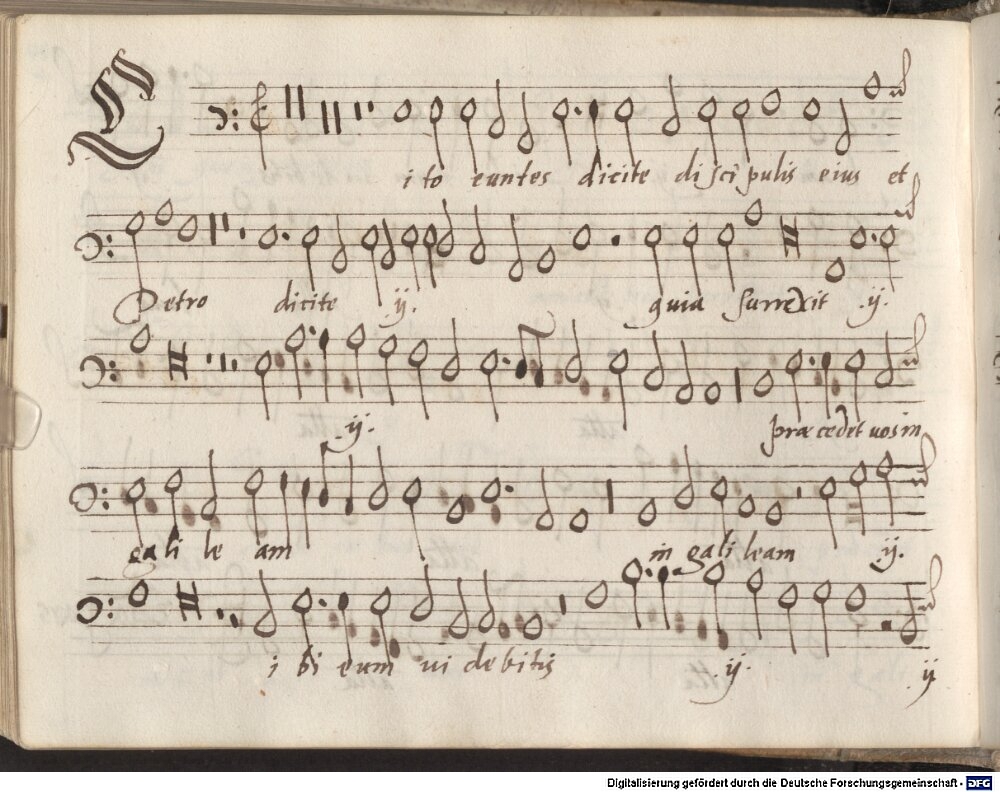 Cito euntes dicite discipulis eius et
Petro dicite ij. quia surrexit ij.
ij. præcedet vos in
galileam in galileam ij.
ibi eum videbitis ij. ij
Digitalisierung gefördert durch die Deutsche Forschungsgemeinschaft - DFG